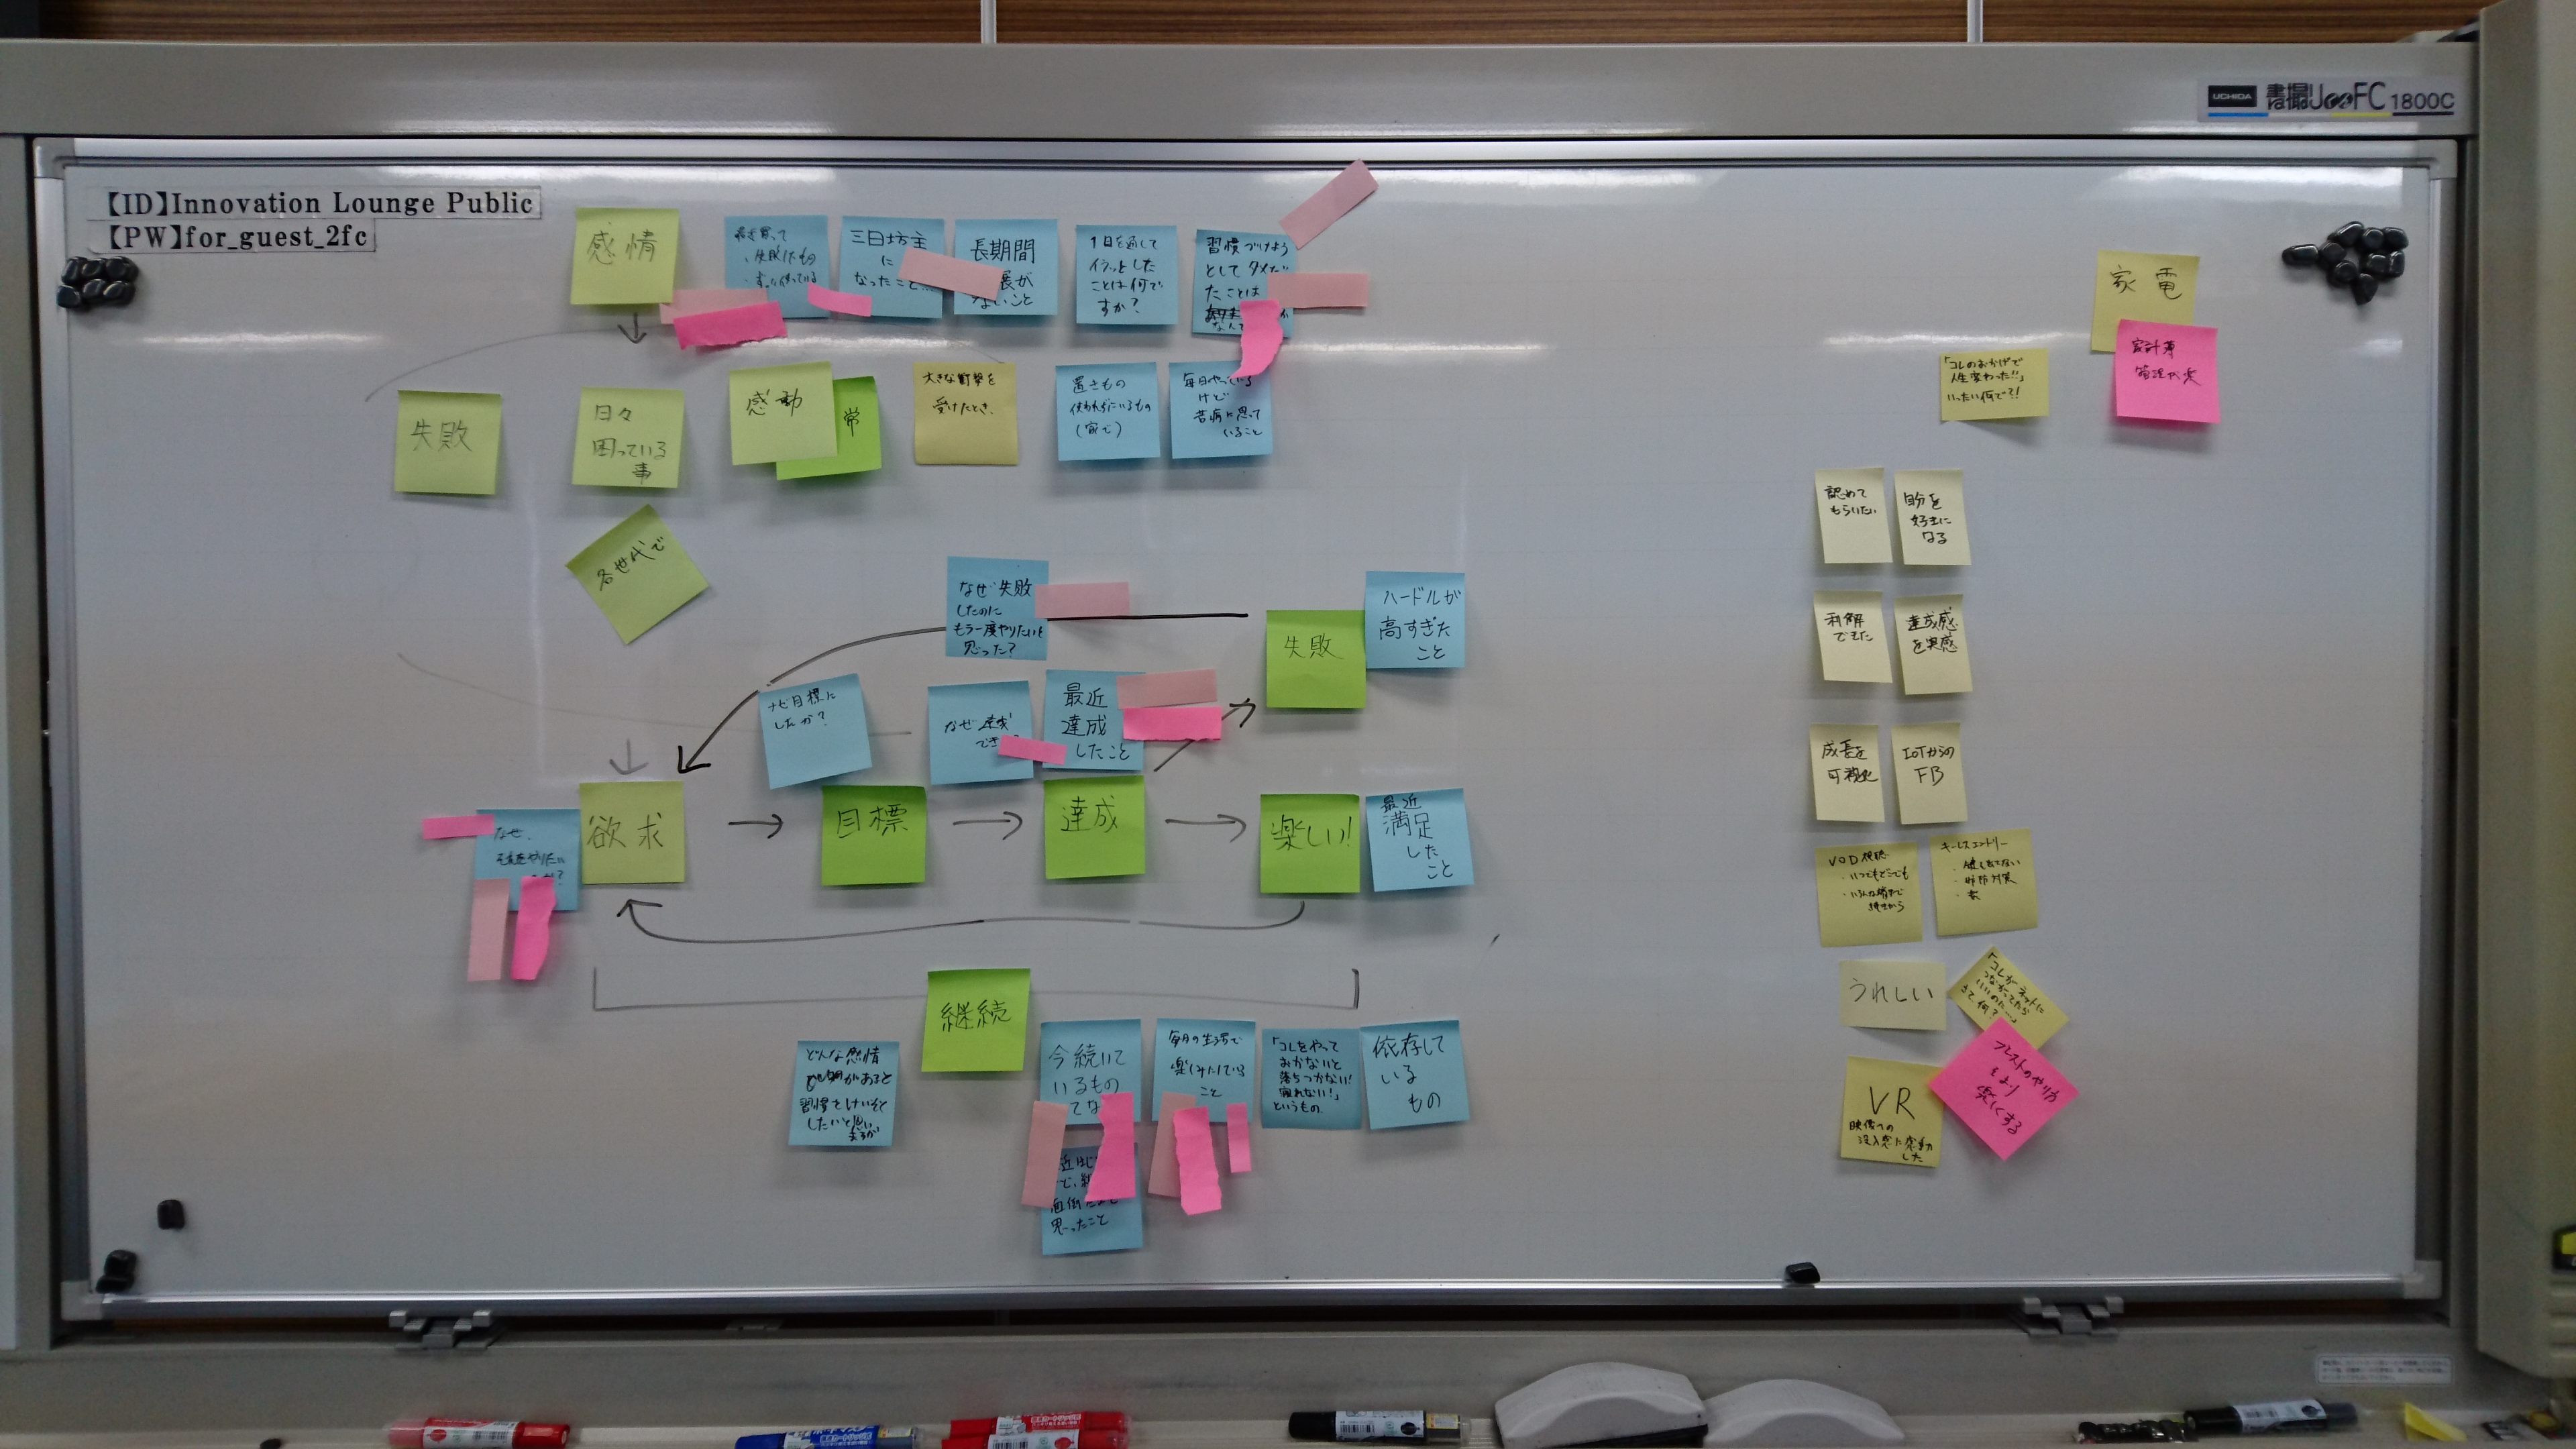 UCHIDA 書撮Uoo FC 1800C
【ID】Innovation Lounge Public
【PW】for_guest_2fc
感情
失敗したもの
三日坊主
に
なったこと
長期間
ないこと
1日を通して
イラッとした
ことは何で
すか?
習慣づけよう
としてダメだ
たことは
失敗
日々
困っている
事
感動
常
大きな衝撃を
受けたとき.
置きもの
使われずにいるもの
(家で)
毎日やっている
けど
苦痛に思って
いること
各世代で
なぜ失敗
したのに
もう一度やりたいと
思った?
失敗
ハードルが
高すぎた
こと
ナゼ目標に
したか?
なぜ達成
でき
最近
達成
したこと
なぜ、
欲求
目標
達成
楽しい!
最近
満足
した
こと
継続
どんな感情
があると
習慣をけいぞく
したいと思い
ますか
今続いて
いるもの
てな
思ったこと
毎日の生活で
楽しみにしている
こと
「コレをやって
おかないと
落ちつかない!
寝れない!」
というもの
依存して
いる
もの
家電
家計簿
管理が楽
「コレのおかげで
人生変わった!!」
いったい何で?!
認めて
もらいたい
自分を
好きに
なる
利解
できた
達成感
を実感
成長を
可視化
IoTからの
FB
VOD視聴
・いつでもどこでも
・いろんな端末で
続きから
キーレスエントリー
・鍵し出てない
・対策
・楽
うれしい
「コレがネットに
つながってたら
いいのたー」
さて何?
VR
映像への
没入感に感動
した
ブレストのやり方
をより
楽しくする